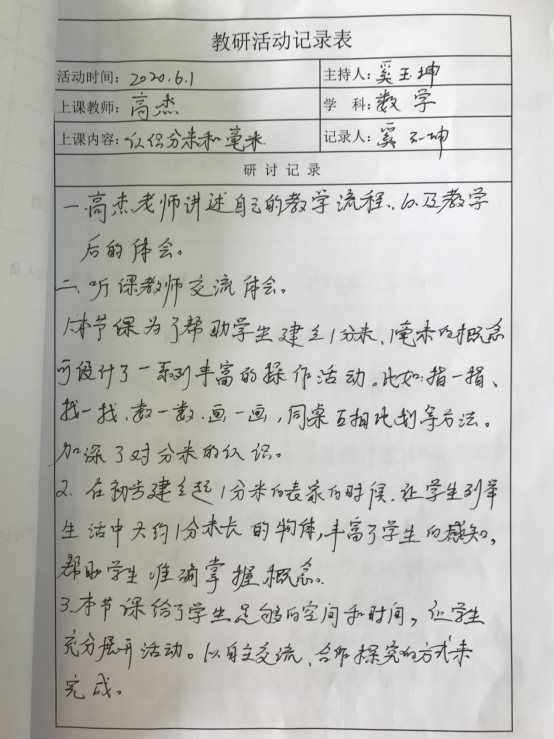 教研活动记录表
活动时间：2020.6.1 主持人：奚玉坤
上课教师：高杰 学 科：数学
上课内容：认识分米和毫米 记录人：奚玉坤
研 讨 记 录
一.高杰老师讲述自己的教学流程、以及教学
后的体会。
二、听课教师交流体会。
1.本节课为了帮助学生建立1分米、1毫米的概念
可设计了一系列丰富的操作活动。比如:指一指、
找一找、数一数、画一画，同桌互相比划等方法。
加深了对分米的认识。
2. 在初步建立起1分米的表象的时候，让学生列举
生活中大约1分米长的物体，丰富了学生的感知，
帮助学生准确掌握概念。
3.本节课给了学生足够的空间和时间，让学生
充分展开活动。以自主交流、合作探究的方式来
完成。